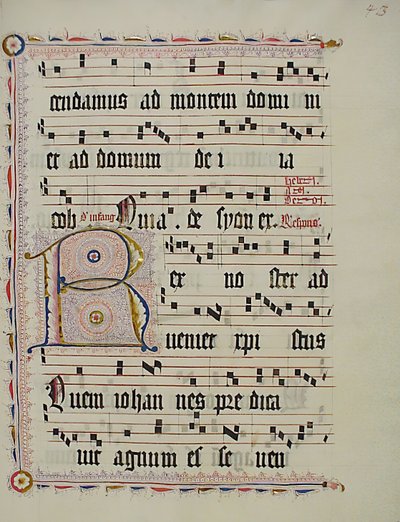 43
cendamus ad montem domi ni
et ad domum de i ia
cob Quia. de syon ex. Respons.
Rex no ster ad
ueniet xpi stus
Quem iohan nes pre dica
uit agnum es se uen